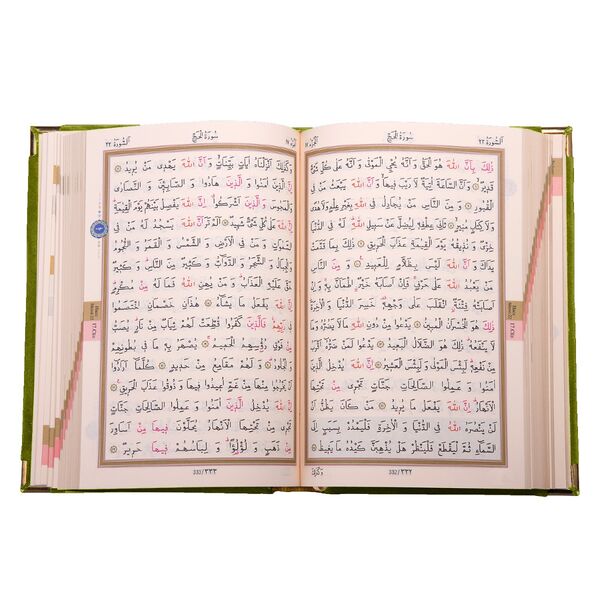 اَلسُّورَةُ ٢٢
سُورَةُ الْحَجِّ
ذٰلِكَ بِاَنَّ اللّٰهَ هُوَ الْحَقُّ وَ اَنَّهُ يُحْيِ الْمَوْتٰى وَ اَنَّهُ عَلٰى كُلِّ شَيْءٍ
قَدِيرٌ وَ اَنَّ السَّاعَةَ اٰتِيَةٌ لَا رَيْبَ فِيهَا وَ اَنَّ اللّٰهَ يَبْعَثُ مَنْ فِي
الْقُبُورِ وَ مِنَ النَّاسِ مَنْ يُجَادِلُ فِي اللّٰهِ بِغَيْرِ عِلْمٍ وَ لَا هُدًى
وَلَا كِتَابٍ مُنِيرٍ ثَانِيَ عِطْفِهِ لِيُضِلَّ عَنْ سَبِيلِ اللّٰهِ لَهُ فِي الدُّنْيَا
خِزْيٌ وَ نُذِيقُهُ يَوْمَ الْقِيٰمَةِ عَذَابَ الْحَرِيقِ ذٰلِكَ بِمَا قَدَّمَتْ
يَدَاكَ وَ اَنَّ اللّٰهَ لَيْسَ بِظَلَّامٍ لِلْعَبِيدِ وَ مِنَ النَّاسِ مَنْ يَعْبُدُ
اللّٰهَ عَلٰى حَرْفٍ فَاِنْ اَصَابَهُ خَيْرٌ اطْمَاَنَّ بِهِ وَ اِنْ
اَصَابَتْهُ فِتْنَةٌ انْقَلَبَ عَلٰى وَجْهِهِ خَسِرَ الدُّنْيَا وَ الْاٰخِرَةَ
ذٰلِكَ هُوَ الْخُسْرَانُ الْمُبِينُ يَدْعُوا مِنْ دُونِ اللّٰهِ مَا لَا يَضُرُّهُ وَ مَا
لَا يَنْفَعُهُ ذٰلِكَ هُوَ الضَّلَالُ الْبَعِيدُ يَدْعُوا لَمَنْ ضَرُّهُ اَقْرَبُ
مِنْ نَفْعِهِ لَبِئْسَ الْمَوْلٰى وَ لَبِئْسَ الْعَشِيرُ اِنَّ اللّٰهَ يُدْخِلُ
الَّذِينَ اٰمَنُوا وَ عَمِلُوا الصَّالِحَاتِ جَنَّاتٍ تَجْرِي مِنْ تَحْتِهَا
الْاَنْهَارُ اِنَّ اللّٰهَ يَفْعَلُ مَا يُرِيدُ مَنْ كَانَ يَظُنُّ اَنْ لَنْ
يَنْصُرَهُ اللّٰهُ فِي الدُّنْيَا وَ الْاٰخِرَةِ فَلْيَمْدُدْ بِسَبَبٍ اِلَى
السَّمَاءِ ثُمَّ لْيَقْطَعْ فَلْيَنْظُرْ هَلْ يُذْهِبَنَّ كَيْدُهُ مَا يَغِيظُ
332/٣٣٢
وَكَذٰلِكَ
سُورَةُ الْحَجِّ
اَلسُّورَةُ ٢٢
وَ كَذٰلِكَ اَنْزَلْنَاهُ اٰيَاتٍ بَيِّنَاتٍ وَ اَنَّ اللّٰهَ يَهْدِي مَنْ يُرِيدُ
اِنَّ الَّذِينَ اٰمَنُوا وَ الَّذِينَ هَادُوا وَ الصَّابِئِينَ وَ النَّصَارٰى
وَالْمَجُوسَ وَ الَّذِينَ اَشْرَكُوا اِنَّ اللّٰهَ يَفْصِلُ بَيْنَهُمْ يَوْمَ الْقِيٰمَةِ
اِنَّ اللّٰهَ عَلٰى كُلِّ شَيْءٍ شَهِيدٌ اَلَمْ تَرَ اَنَّ اللّٰهَ يَسْجُدُ لَهُ مَنْ فِي
السَّمٰوَاتِ وَ مَنْ فِي الْاَرْضِ وَ الشَّمْسُ وَ الْقَمَرُ وَ النُّجُومُ
وَ الْجِبَالُ وَ الشَّجَرُ وَ الدَّوَابُّ وَ كَثِيرٌ مِنَ النَّاسِ وَ كَثِيرٌ
حَقَّ عَلَيْهِ الْعَذَابُ وَ مَنْ يُهِنِ اللّٰهُ فَمَا لَهُ مِنْ مُكْرِمٍ
اِنَّ اللّٰهَ يَفْعَلُ مَا يَشَاءُ هٰذَانِ خَصْمَانِ اخْتَصَمُوا
فِي رَبِّهِمْ فَالَّذِينَ كَفَرُوا قُطِّعَتْ لَهُمْ ثِيَابٌ مِنْ نَارٍ يُصَبُّ
مِنْ فَوْقِ رُؤُسِهِمُ الْحَمِيمُ يُصْهَرُ بِهِ مَا فِي بُطُونِهِمْ
وَ الْجُلُودُ وَ لَهُمْ مَقَامِعُ مِنْ حَدِيدٍ كُلَّمَا اَرَادُوا
اَنْ يَخْرُجُوا مِنْهَا مِنْ غَمٍّ اُعِيدُوا فِيهَا وَ ذُوقُوا عَذَابَ الْحَرِيقِ
اِنَّ اللّٰهَ يُدْخِلُ الَّذِينَ اٰمَنُوا وَ عَمِلُوا الصَّالِحَاتِ جَنَّاتٍ
تَجْرِي مِنْ تَحْتِهَا الْاَنْهَارُ يُحَلَّوْنَ فِيهَا مِنْ اَسَاوِرَ
مِنْ ذَهَبٍ وَ لُؤْلُؤًا وَ لِبَاسُهُمْ فِيهَا حَرِيرٌ
333/٣٣٣